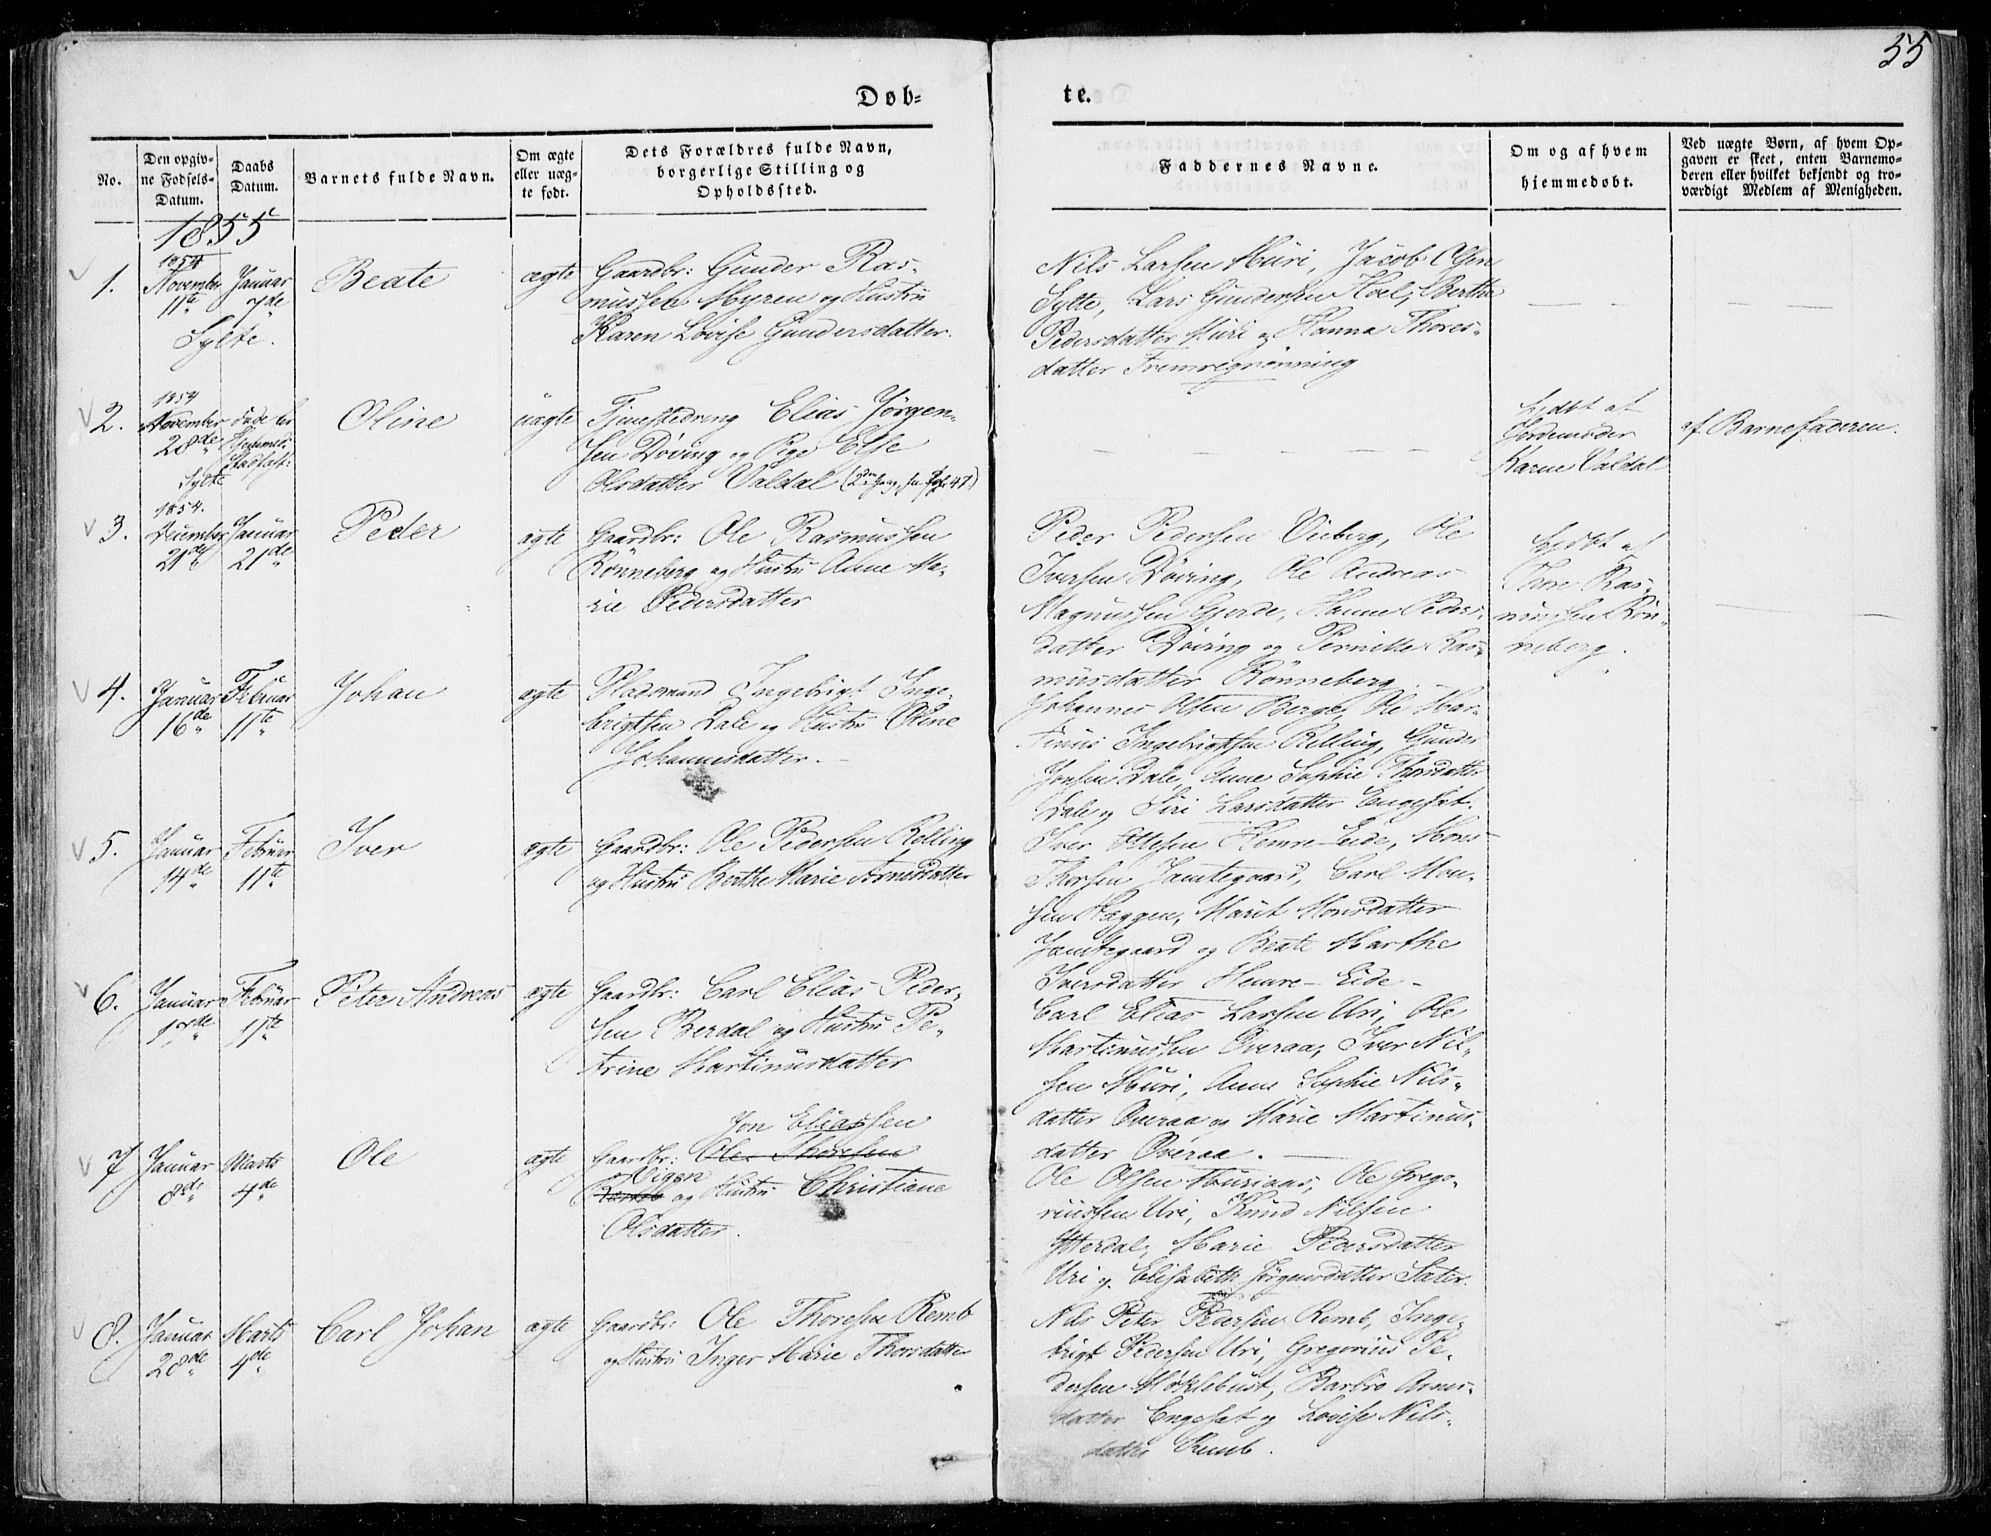 55
Døb=
te.
No.
Den opgiv-
ne Fødsels-
Datum.
Daabs
Datum.
Barnets fulde Navn.
Om ægte
eller uæg-
te født.
Dets Forældres fulde Navn,
borgerlige Stilling og
Opholdssted.
Faddernes Navne.
Om og af hvem
hjemmedøbt.
Ved uægte Børn, af hvem Op-
gaven er skeet, enten Barnemo-
deren eller hvilket bekjendt og tro-
værdigt Medlem af Menigheden.
1855
1.
1854
November
11te
Sylte.
Januar
7de
Beate
ægte
Gaardbr: Gunder Ras-
mussen Myren og Hustru
Karen Lovise Gundersdatter.
Nils Larsen Muri, Jacob Olsen
Sylte, Lars Gundersen Hoel, Berthe
Pedersdatter Muri og Hanna Thores-
datter Fremregrønning
2.
1854
November
28de
Sylte
døde før
Hjemmed:
Stadfæst:
Oline
uægte
Elias Jørgen-
sen Døving og Pige Else
Olsdatter Valdal
hjdbt af
Jordemoder
Karne Valdal
af Barnefaderen.
3.
1854.
December
21de
Januar
21de
Peder
ægte
Gaardbr: Ole Rasmussen
Rønneberg og Hustru Anne Ma-
rie Pedersdatter
Peder Pedersen Vieberg, Ole
Iversen Døving, Ole Andreas
Magnussen Gjerde, Hanne Peders-
datter Døving og Pernille Ras-
musdatter Rønneberg.
hjdbt af
Thore Ras-
mussen Røn-
neberg.
4.
Januar
16de
Februar
11te
Johan
ægte
Pladsmand Ingebrigt Inge-
brigtsen Dale og Hustru Oline
Johannesdatter.
Johannes Olsen Berge, Ole Mar-
tinus Ingebrigtsen Relling, Gunder
Jonsen Dale, Anne Sophie Thorsdatter
Dale og Siri Larsdatter Engeset.
5.
Januar
14de
Februar
11te
Iver
ægte
Gaardbr: Ole Pedersen Relling
og Hustru Berthe Marie Arnesdatter
Iver Ottesen Hemre-Eide, Mons
Thorsen Jamtegaard, Carl Mon-
sen Hæggen, Marit Monsdatter
Jamtegaard og Beate Marthe
Iversdatter Hemre-Eide -
6.
Januar
17de
Februar
11te
Peter Andreas
ægte
Gaardbr: Carl Elias Peder-
sen Berdal og Hustru Pe-
trine Martinusdatter
Carl Elias Larsen Uri, Ole
Martinussen Overaa, Iver Nil-
sen Muri, Anne Sophie Nils-
datter Overaa og Marie Martinus-
datter Overaa.
7
Januar
8de
Marts
4de
Ole
ægte
Jon Eliassen
Gaardbr: Ole Thoresen
Vigen
og Hustru Christiane
Olsdatter.
Ole Olsen Muriaas, Ole Grego-
riussen Uri, Knud Nilsen
Ytterdal, Marie Pedersdatter
Uri og Elisabeth Jørgensdatter Sater.
8.
Januar
28de
Marts
4de
Carl Johan
ægte
Gaardbr: Ole Thoresen Remb
og Hustru Inger Marie Thorsdatter
Nils Peter Pedersen Remb, Inge-
brigt Pedersen Uri, Gregorius Pe-
dersen Møklebust, Barbro Arnes-
datter Engeset og Lovise Nils-
datter Remb.